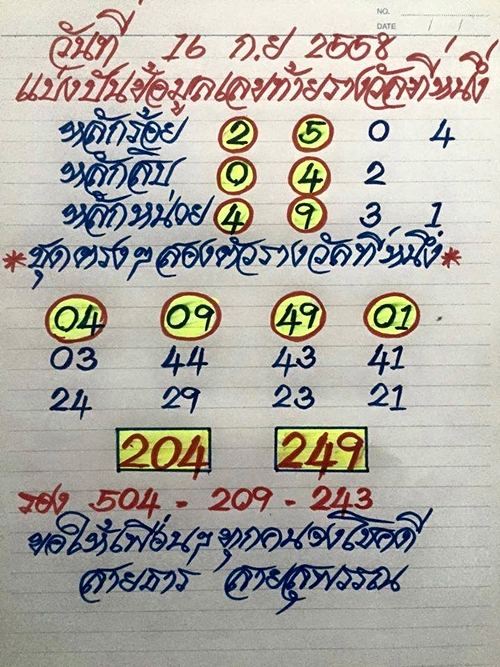 NO.
DATE / /
วันที่ 16 ก.ย 2558
แบ่งปันข้อมูลเลขท้ายรางวัลที่หนึ่ง
หลักร้อย 2 5 0 4
หลักสิบ 0 4 2
หลักหน่วย 4 9 3 1
*ชุดตรงๆสองตัวรางวัลที่หนึ่ง*
04 09 49 01
03 44 43 41
24 29 23 21
204 249
รอง 504 - 209 - 243
ขอให้เพื่อนๆทุกคนจงโชคดี
สายธาร สายสุพรรณ